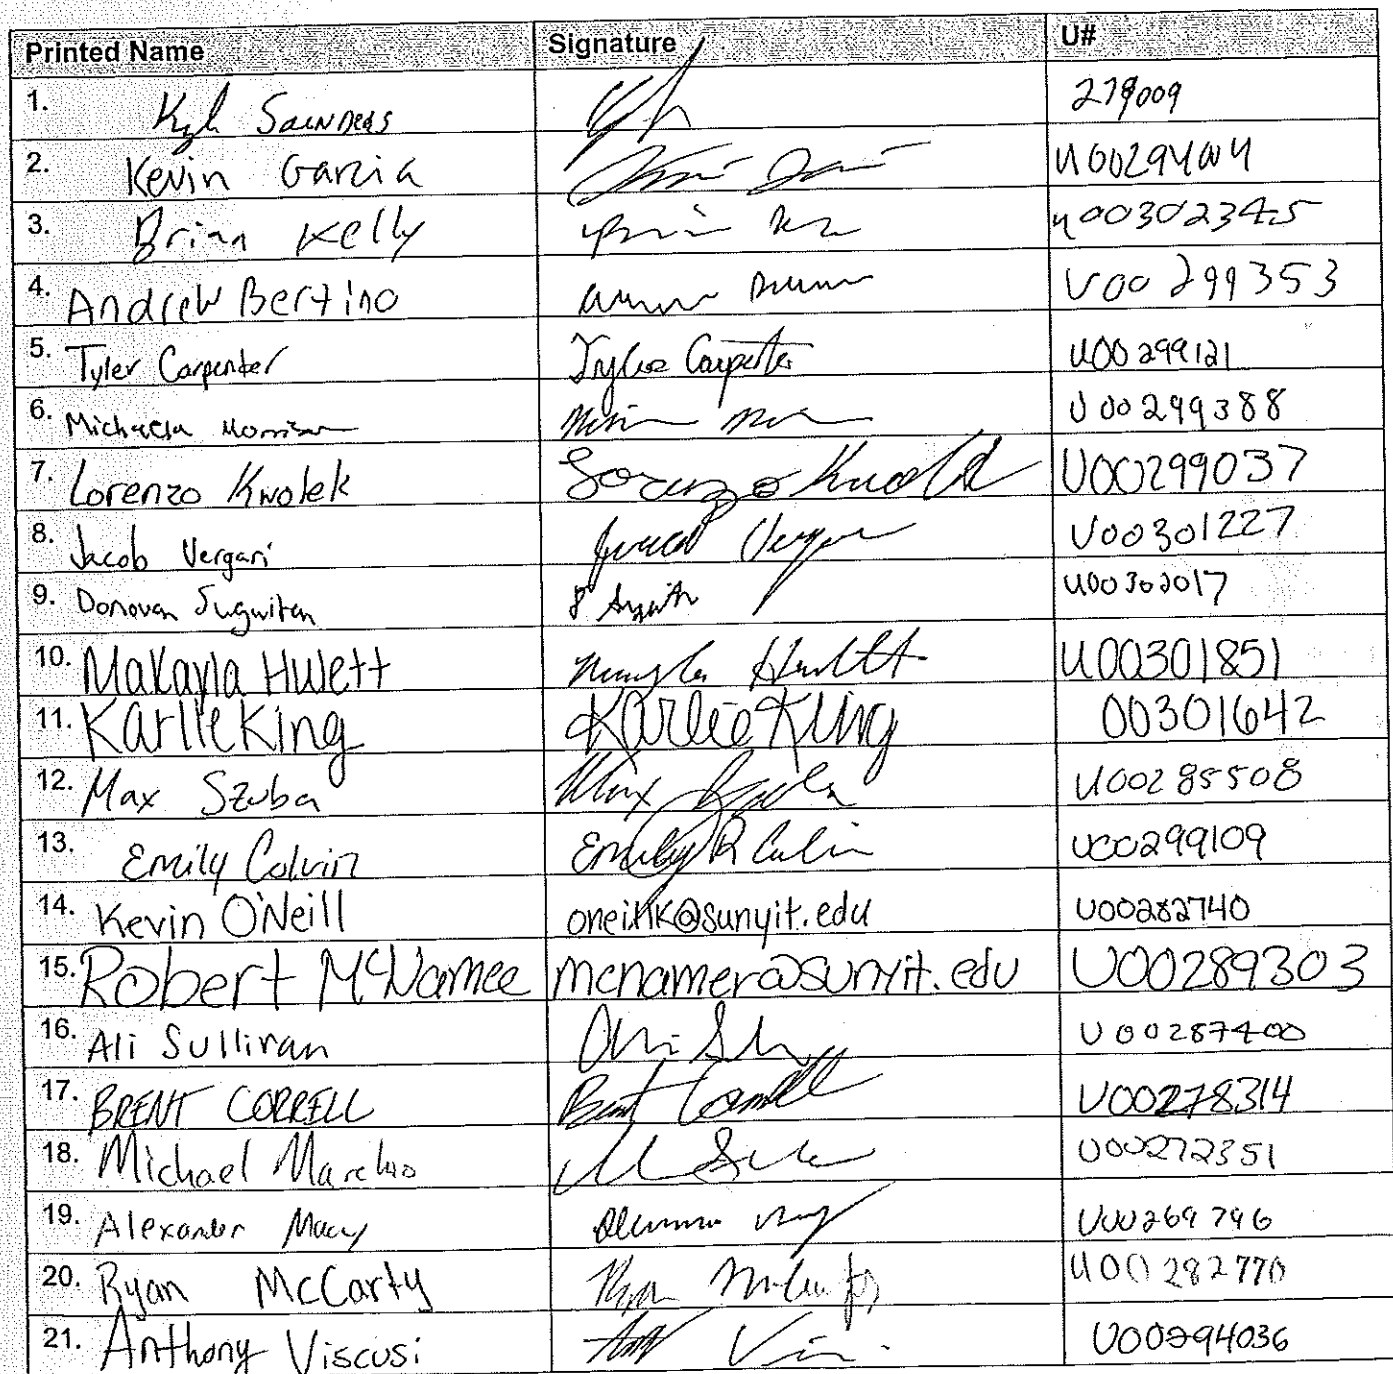 Printed Name Signature U#
1. Kyle Saunders 279009
2. Kevin Garcia U00294004
3. Brian Kelly U00302345
4. Andrew Bertino U00299353
5. Tyler Carpenter Tyler Carpenter U00299121
6. Michaela Morrison U00299388
7. Lorenzo Kwolek Lorenzo Kwolek U00299037
8. Jacob Vergari Jacob U00301227
9. Donovan Suguitan U00302017
10. Makayla Hulett Makayla Hulett U00301851
11. Karlie King Karlie King 00301642
12. Max Szuba Max Szuba U00285508
13. Emily Colvin Emily R Colvin U00299109
14. Kevin O'Neill oneillk@sunyit.edu U00282740
15. Robert McNamee mcnamer@sunyit.edu U00289303
16. Ali Sullivan U00287400
17. BRENT CORRELL Brent Correll U00278314
18. Michael U00272351
19. Alexander Macy U00269796
20. Ryan McCarty Ryan U00282770
21. Anthony Viscusi U00294036